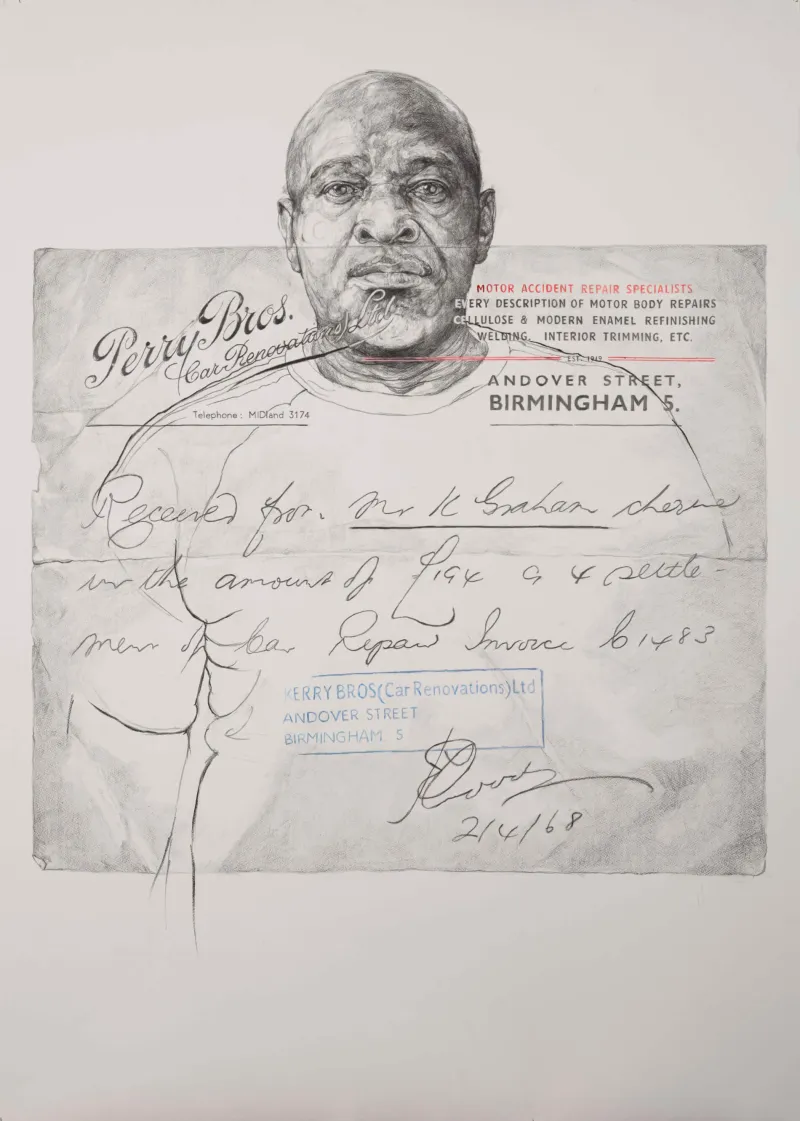 Perry Bros.
Car Renovations Ltd.
Telephone: MIDland 3174
MOTOR ACCIDENT REPAIR SPECIALISTS
EVERY DESCRIPTION OF MOTOR BODY REPAIRS
CELLULOSE & MODERN ENAMEL REFINISHING
WELDING, INTERIOR TRIMMING, ETC.
EST. 1919
ANDOVER STREET,
BIRMINGHAM 5.
Received from Mr K Graham
in the amount of £194 settle-
ment of Car Repair Invoice 61483
KERRY BROS(Car Renovations)Ltd
ANDOVER STREET
BIRMINGHAM 5
2/4/68